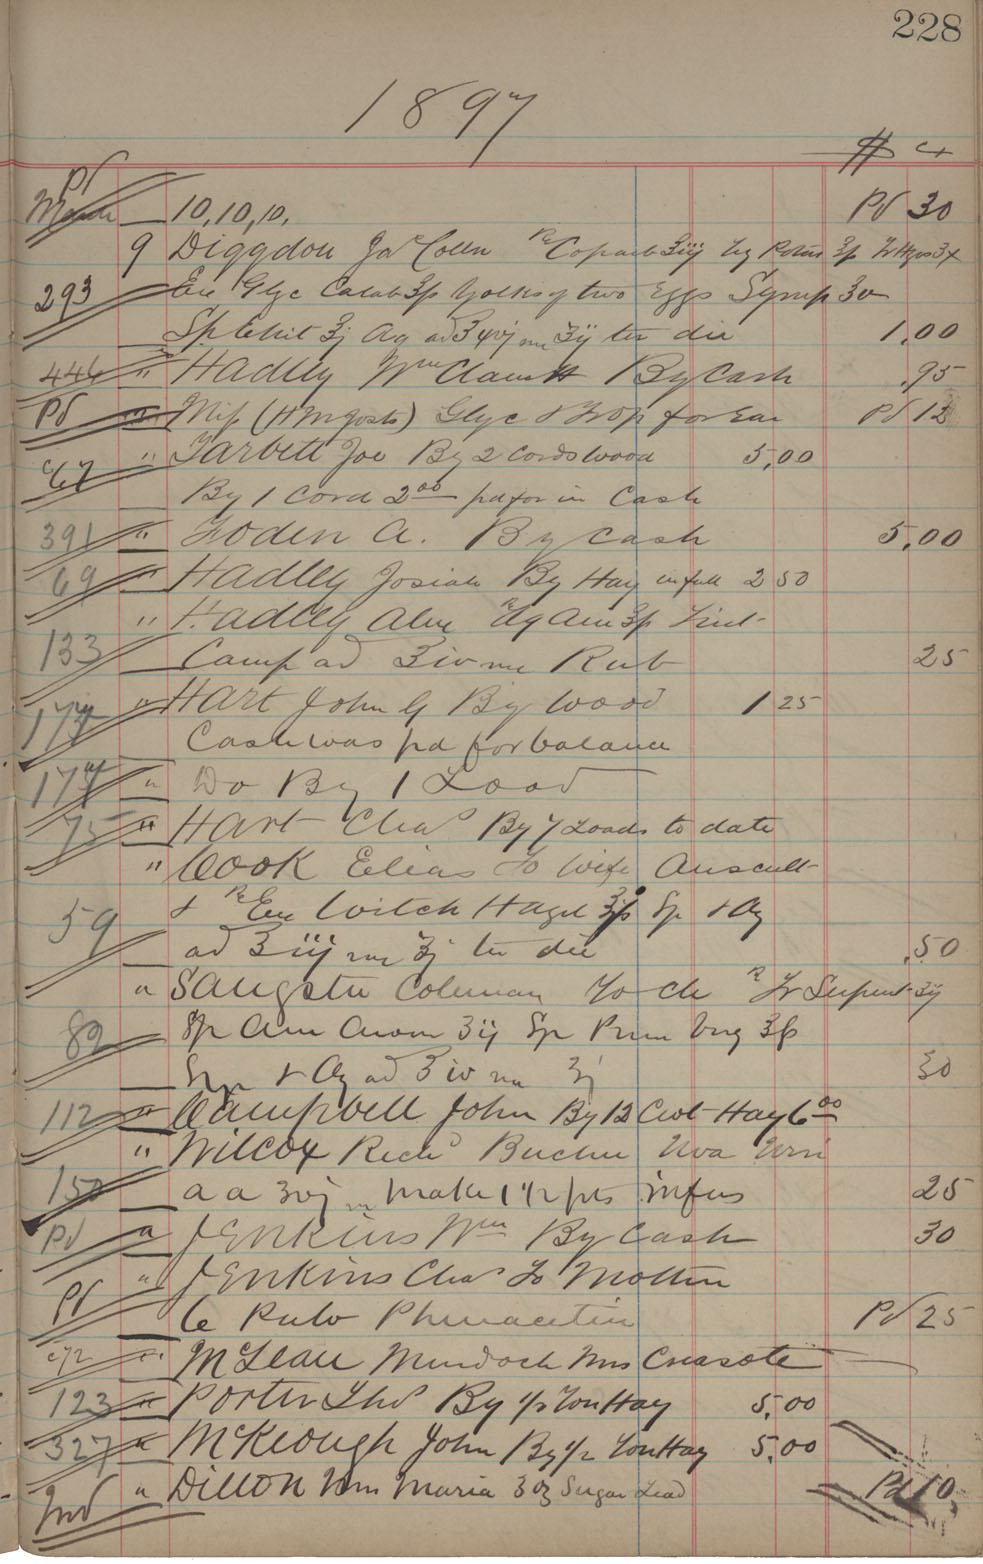 228
1897
$ c
Pd
March 10, 10, 10, Pd 30
9 Diggdon Jas Colln Rx Copaib ʒiij Liq Potas ʒſ
293 Ext Glyc ʒſ Yolks of two Eggs Syrup
Sp Chlt ʒj Aq ad ʒ ʒij ter die 1,00
446 " Hadley Wm By Cash ,95
Pd " Miss (H ) Glyc & for Ear Pd 12
" Tarbett Joe By 2 Cords wood 5,00
By 1 Cord 2 00 pd for in Cash
391 " Foden A. By Cash 5,00
69 " Hadley Josiah By Hay in full 2 50
" Hadley Rx ʒſ Lint
133 Camp ad ʒiv Rub 25
" Hart John G By Wood 1 25
Cash was pd for balance
" Do By 1 Load
75 " Hart Chas By 7 Loads to date
" Cook Elias To Wife Auscult
59 & Rx Ext Witch Hazel ʒſ Sp & Aq
ad ʒiij ʒj ter die ,50
" Sangster Coleman To ch Rx Tr Serpent ʒij
82 Sp Am Arom ʒij Syr Prun Virg ʒſ
Syr & Aq ad ʒiv ʒj 30
112 " Campbell John By 12 Cwt Hay 6 00
" Wilcox Richd Buchu Uva Ursi
150 a a ʒvj make 1 1/2 pts infus 25
Pd " Jenkins Wm By Cash 30
" Jenkins Chas To Mother
Pd 6 Pulv Phenacetin Pd 25
" McLean Murdoch Mrs Creasote
123 " Porter Thos By 1/2 Ton Hay 5,00
327 " McKeough John By 1/2 Ton Hay 5,00
" Dillon Mrs Maria 3 oz Sugar Lead Pd 10,